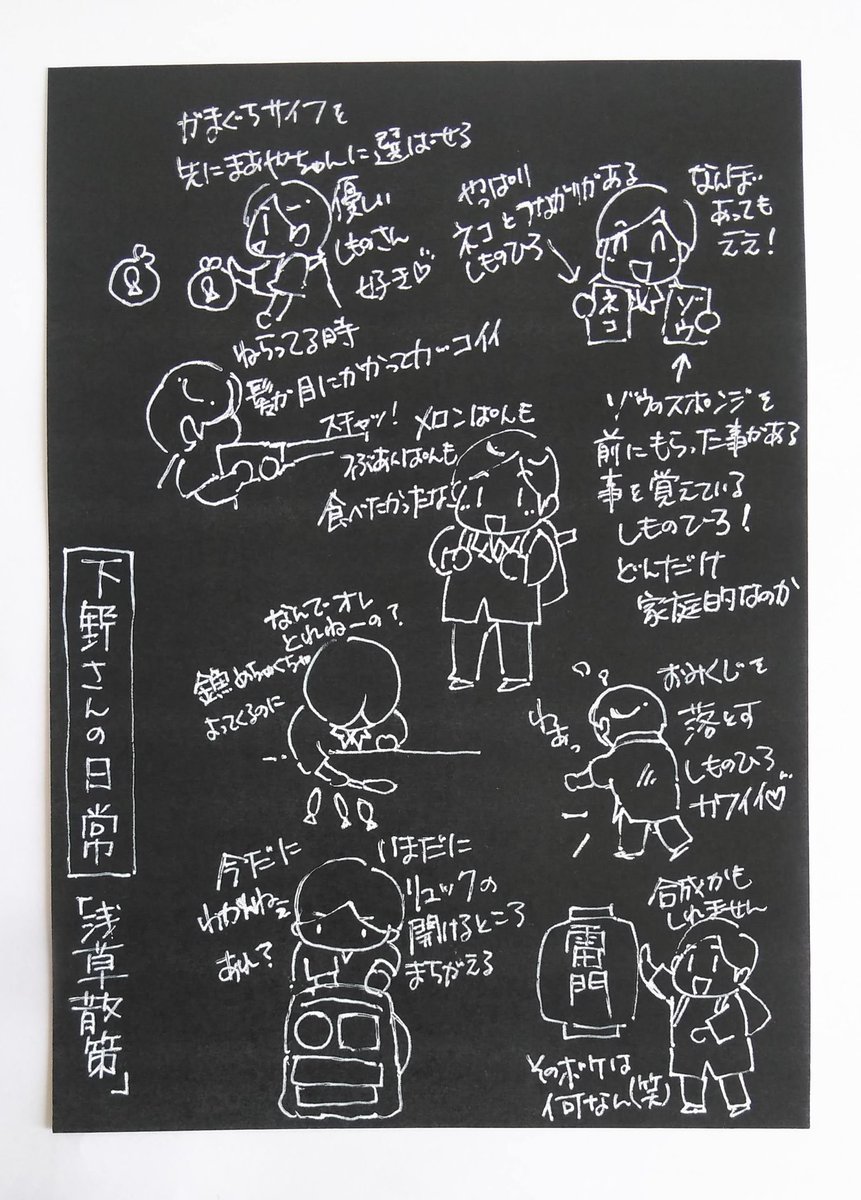 がまぐちサイフを
先にまあやちゃんに選ばせる
優しい
しものさん
好き♡
やっぱり
ネコとつながりがある
しものひろ
なんぼ
あっても
ええ!
ネコ
ゾウ
ゾウのスポンジを
前にもらった事がある
事を覚えている
しものひろ!
どんだけ
家庭的なのか
ねらってる時
髪が目にかかってカッコイイ
スチャッ!
メロンぱんも
つぶあんぱんも
食べたかったな
なんでオレ
とれねーの?
めちゃくちゃ
よってくるのに
おみくじを
落とす
しものひろ
カワイイ♡
わぁっ
今だに
わかんねぇ
あれ?
いまだに
リュックの
開けるところ
まちがえる
合成かも
しれません
雷門
そのボケは
何なん(笑)
下野さんの日常
「浅草散策」